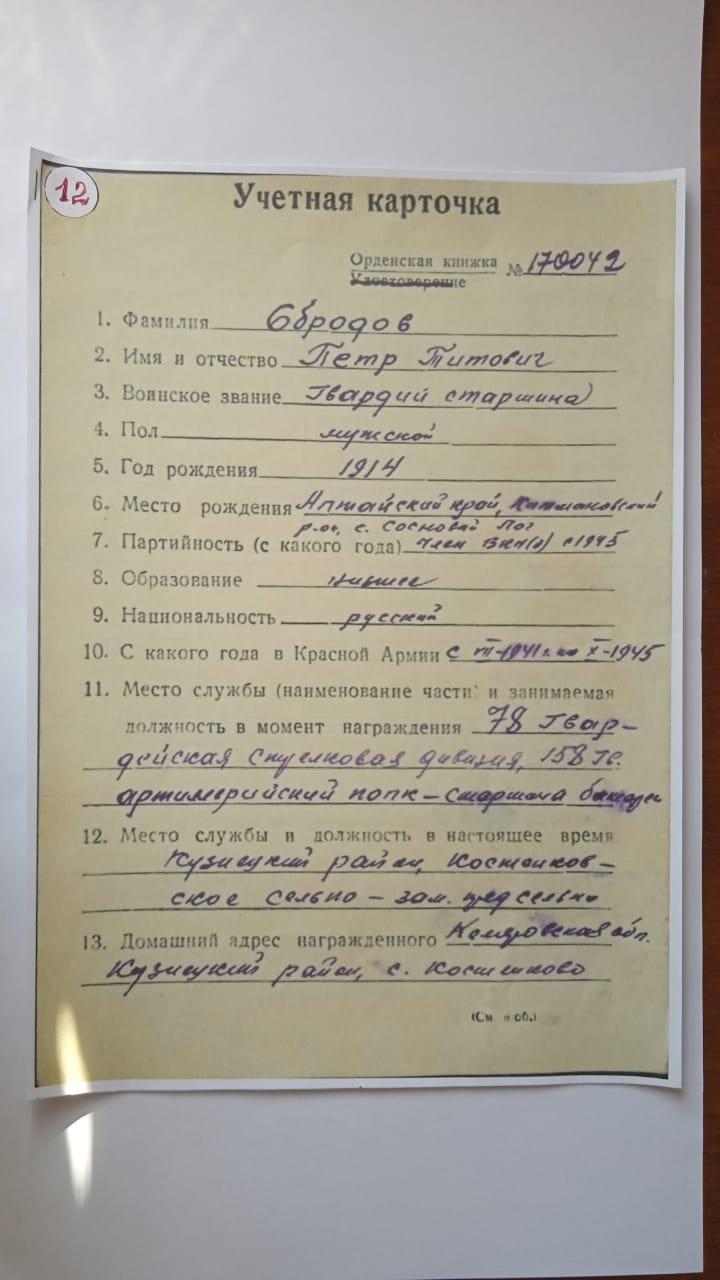 12
Учетная карточка
Орденская книжка № 170042
Удостоверение
1. Фамилия Обродов
2. Имя и отчество Петр Титович
3. Воинское звание Гвардий старшина
4. Пол мужской
5. Год рождения 1914
6. Место рождения Алтайский край,
р-он, с. Сосновый Лог
7. Партийность (с какого года) член ВКП(б) с 1945
8. Образование низшее
9. Национальность русский
10. С какого года в Красной Армии с 1941 г. по X-1945
11. Место службы (наименование части и занимаемая
должность в момент награждения 78 Гвар-
дейская стрелковая дивизия, 158 Гв.
артиллерийский полк – старшина батареи
12. Место службы и должность в настоящее время
Кузнецкий район, Костенков-
ское сельпо – зам. пред сельпо
13. Домашний адрес награжденного Кемеровская обл.
Кузнецкий район, с. Костенково
(См н об.)